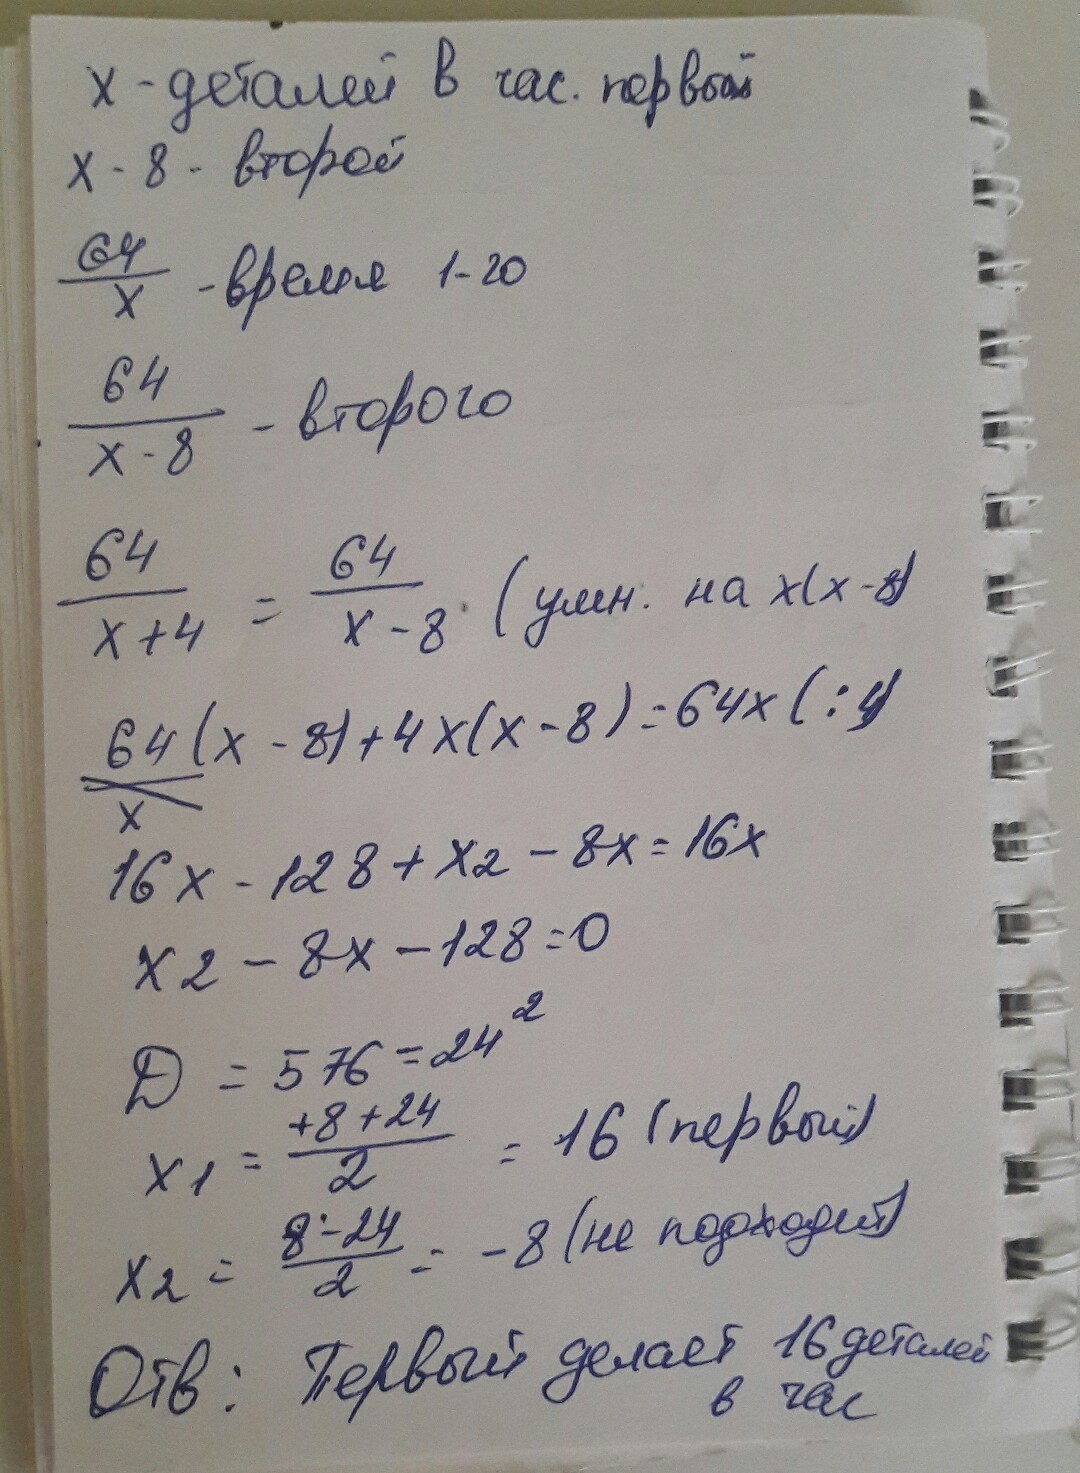 x - деталей в час. первый
x - 8 - второй
64/x - время 1-го
64/(x - 8) - второго
64/(x+4) = 64/(x-8) (умн. на x(x-8)
64(x - 8)+4x(x-8)=64x (:4)
x
16x - 128 + x2 - 8x = 16x
x2 - 8x - 128 = 0
D = 576 = 24²
x1 = (+8+24)/2 = 16 (первый)
x2 = (8-24)/2 = -8 (не подходит)
Отв: Первый делает 16 деталей
в час